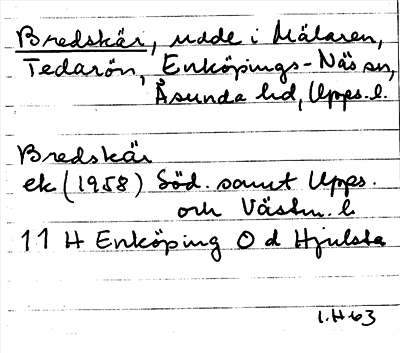 Bredskär, udde i Mälaren,
Tedarön, Enköpings-Näs sn,
Åsunda hd, Upps. l.
Bredskär
ek (1958) Söd. samt Upps.
och Västm. l
11 H Enköping O d Hjulsta
I.H 63